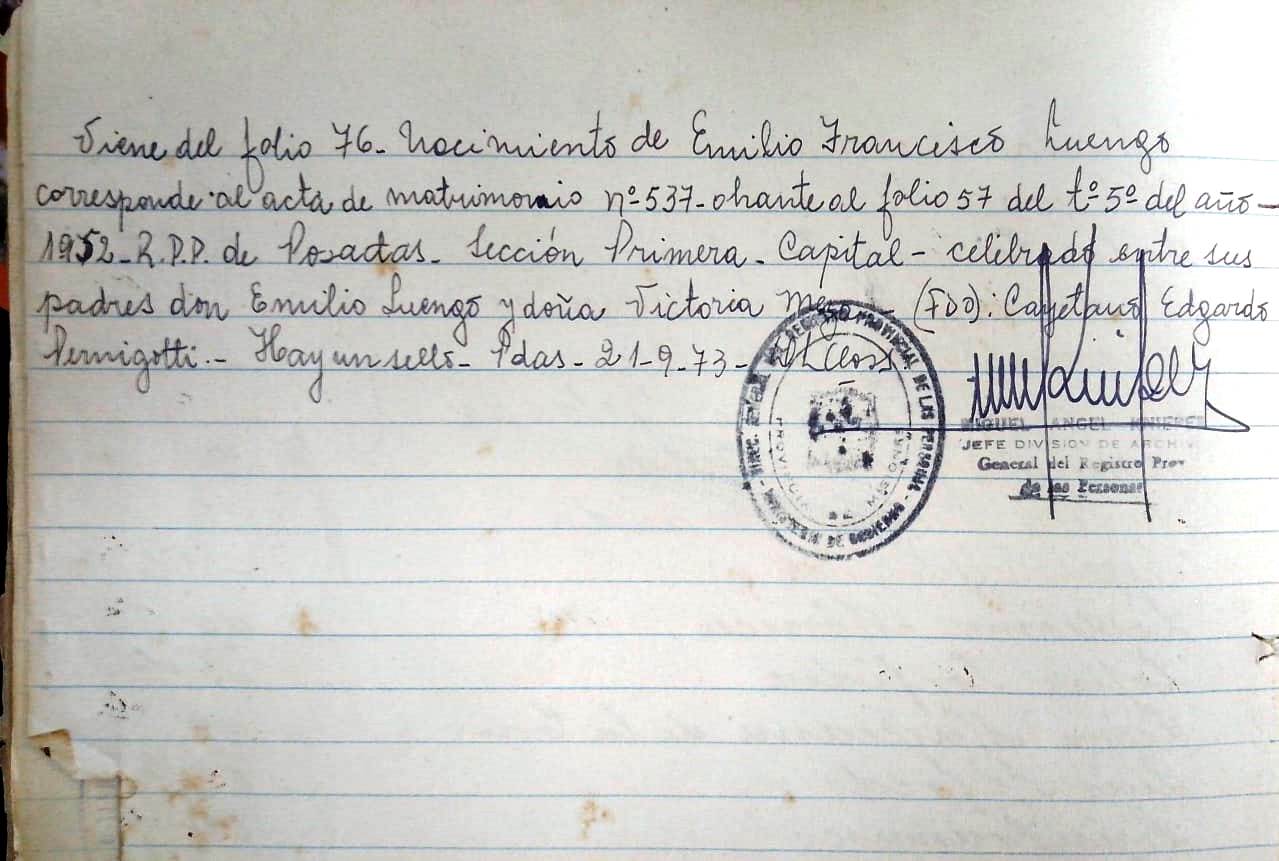 Viene del folio 76_ Nacimiento de Emilio Francisco Luengo
corresponde al acta de matrimonio nº 537_ obrante al folio 57 del tº 5º del año_
1952_ R.P.P. de Posadas_ Sección Primera_ Capital_ celebrado entre sus
padres don Emilio Luengo y doña Victoria (FDO): Cayetano Edgardo
Pernigotti.- Hay un sello_ Pdas_ 21-9-73_
REGISTRO PROVINCIAL DE LAS PERSONAS
PROVINCIA DE MISIONES
DE GOBIERNO
MIGUEL ANGEL
JEFE DIVISION DE ARCHIVO
General del Registro Prov
de las Personas